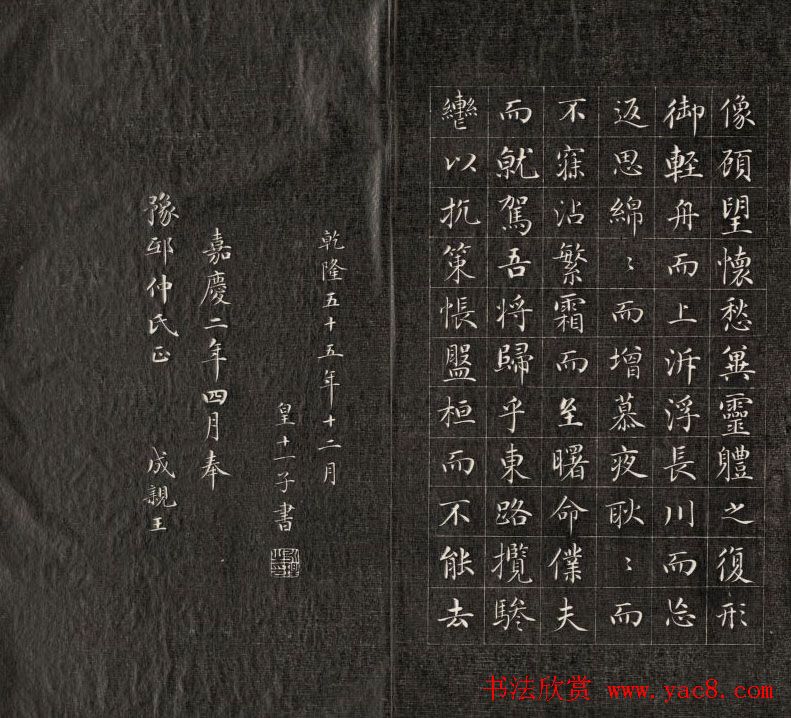 像頋望懷愁兾靈軆之復形
御輕舟而上泝浮長川而忘
返思綿〻而增慕夜耿〻而
不寐沾繁霜而至曙命僕夫
而就駕吾将歸乎東路攬驂
轡以抗策悵盤桓而不能去
乾隆五十五年十二月
皇十一子書
嘉慶二年四月奉
豫邸仲氏正 成親王
书法欣赏 www.yac8.com